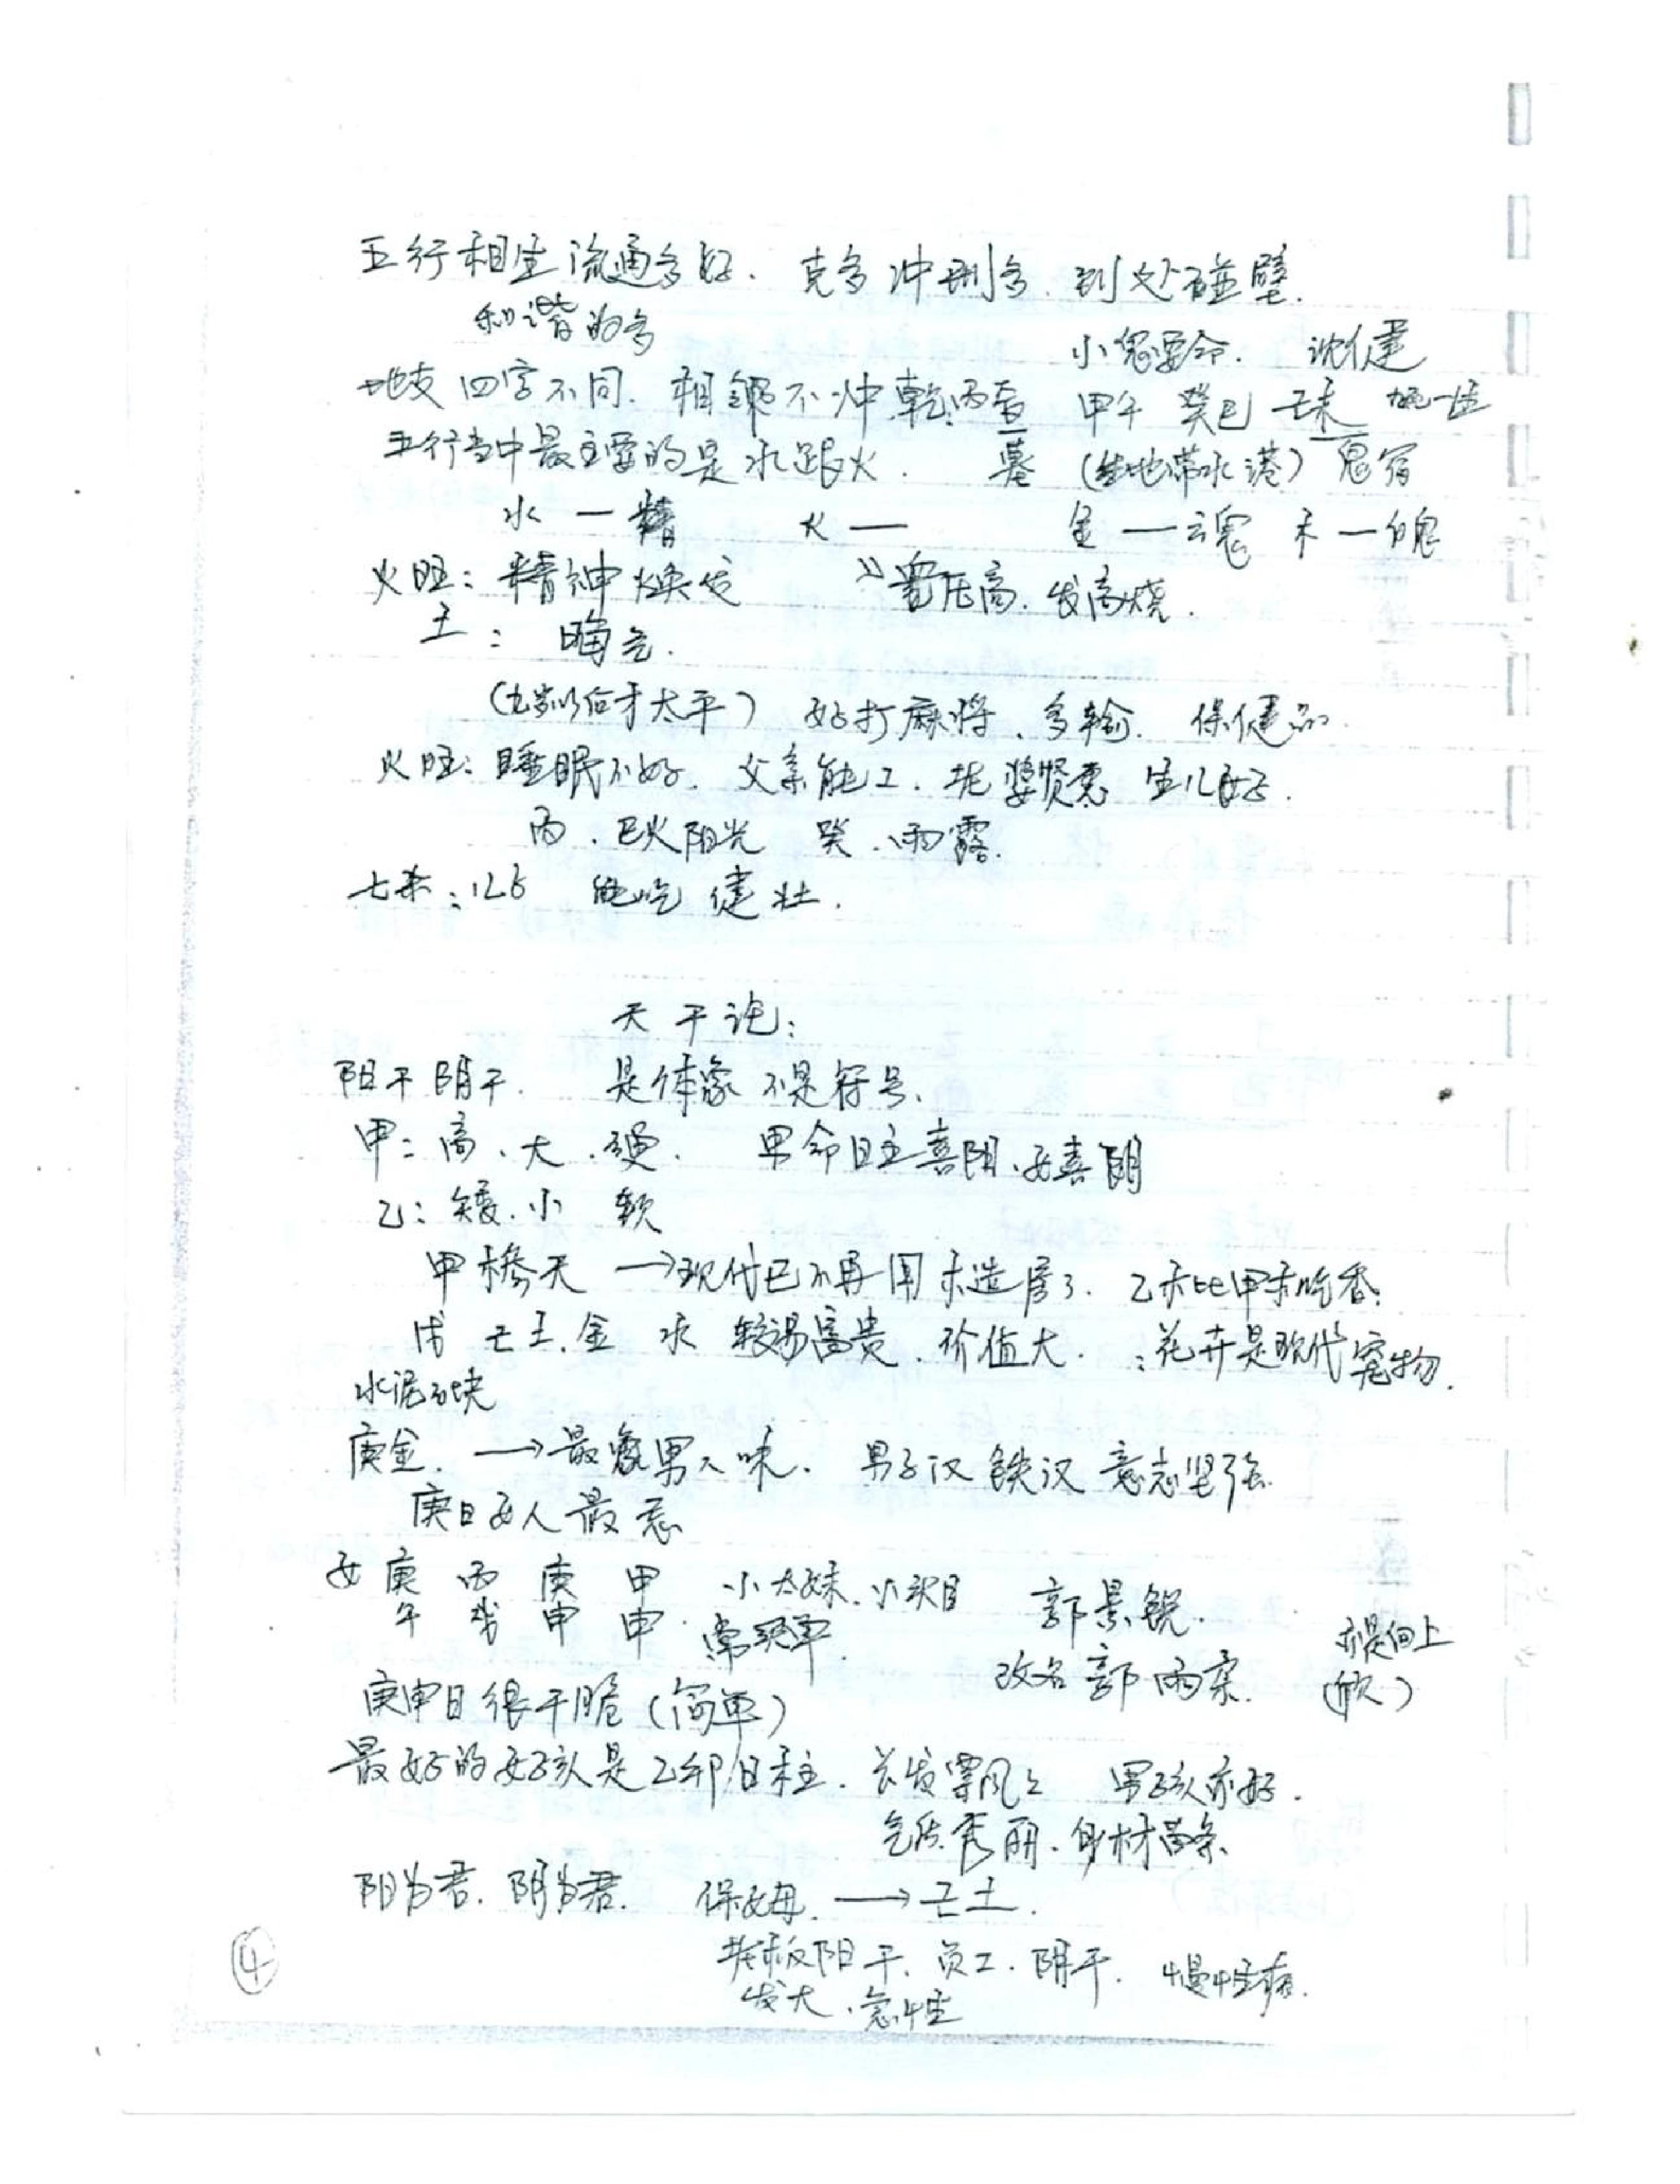 五行相生流通多好. 克多冲刑多. 到处碰壁.
和谐的多
小鬼要命. 沈健
地支四字不同. 相 不冲 乾: 丙 甲午 癸巳 一
五行当中最主要的是水跟火. 墓 (生地带水港) 鬼宿
水一精 火一 金一魂 木一魄
火旺: 精神焕发 血压高. 发高烧.
土: 晦气.
(九岁以后才太平) 好打麻将、多输. 保健品.
火旺: 睡眠不好. 父亲能工. 老婆贤惠 生儿好.
丙. 巳火阳光 癸. 雨露.
七杀: 126 能吃 健壮.
天干论:
阳干阴干. 是体象 不是符号.
甲: 高、大、硬. 男命日主喜阳、女喜阴
乙: 矮. 小 软
甲木参天 →现代已不再用木造房了. 乙木比甲木吃香.
戊 己土. 金 水 较易富贵. 价值大. ∵花卉是现代宠物.
水泥石块
庚金. →最象男人味. 男子汉 铁汉 意志坚强.
庚日女人最忌
女 庚 丙 庚 甲 小大妹. 小头目 郭景锐.
午 戌 申 申. 常冠军. 改名郭雨亲. 亦是向上
庚申日很干脆 (简单) (欣)
最好的女孩是乙卯日柱. 长发飘飘 男孩亦好.
气质秀丽. 身材苗条
阳为君. 阴为君. 保姆. →己土.
老板阳干. 员工. 阴干. 慢性病.
发大、急性
④